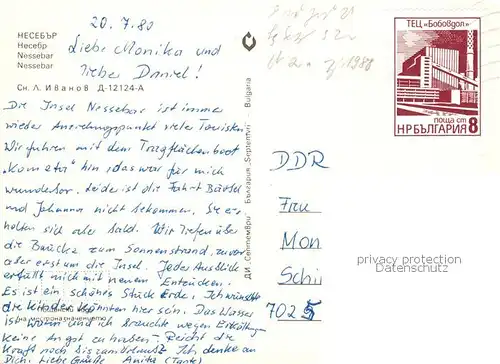 20.7.80
НЕСЕБЪР
Несебр
Nessebar
Nessebar
Сн. Л. Иванов Д-12124-А
Liebe Monika und
lieber Daniel!
Die Insel Nessebar ist immer
wieder Anziehungspunkt vieler Touristen.
Wir fuhren mit dem Tragflächenboot
„Kometa" hin, das war für mich
wunderbar. Leider ist die Fahrt Bärbel
und Johanna nicht bekommen. Sie er-
holten sich aber bald. Wir liefen über
die Brücke zum Sonnenstrand, zuvor
aber erst um die Insel. Jeder Ausblick
erfüllt mich mit neuem Entzücken.
Es ist ein schönes Stück Erde. Ich wünschte
die Kinder könnten hier sein. Das Wasser
ist warm und ich brauchte wegen Erkältung
keine Angst zu haben. Reicht die
Kraft noch bis zum Urlaub? Ich denke an
Dich. Liebe Grüße Anita (Tante)
ДИ „Септември" България „Septemvri" Bulgaria
1980
ТЕЦ „Бобовдол"
поща ст 8
НР БЪЛГАРИЯ
DDR
Frau
Mon
Schi
7025
privacy protection
Datenschutz